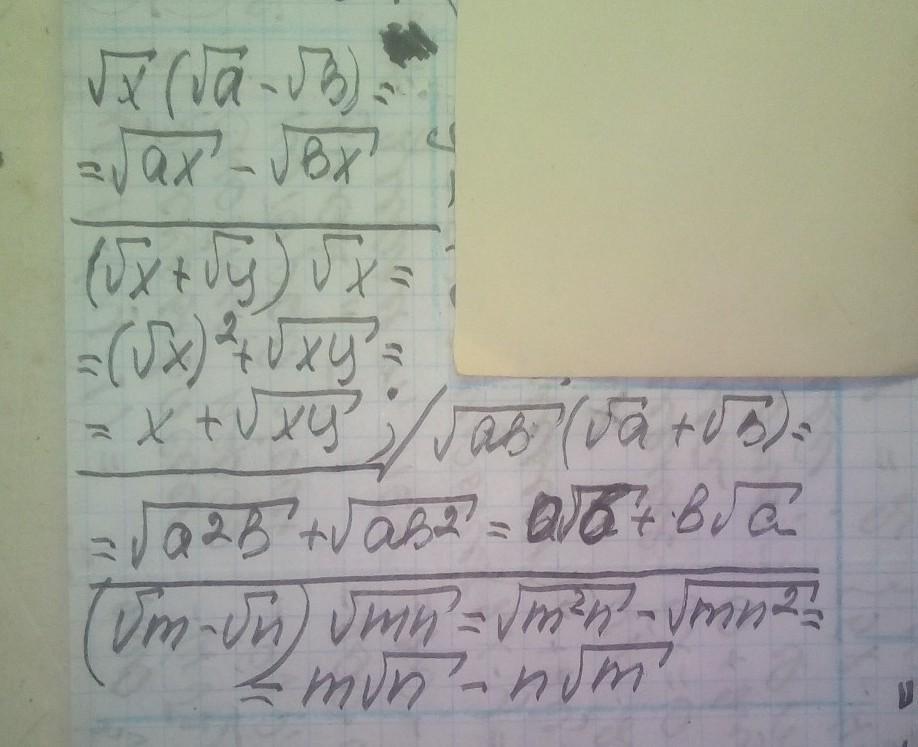 √x (√a - √b) =
= √ax - √bx
(√x + √y) √x =
= (√x)² + √xy =
= x + √xy ; / √ab (√a + √b) =
= √a2b + √ab2 = a√b + b√a
(√m - √n) √mn = √m²n - √mn² =
= m√n - n√m